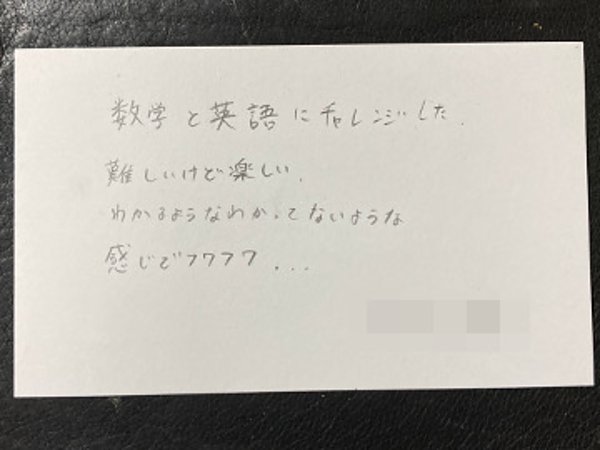 数学と英語にチャレンジした.
難しいけど楽しい.
わかるようなわかってないような
感じでフワフワ...